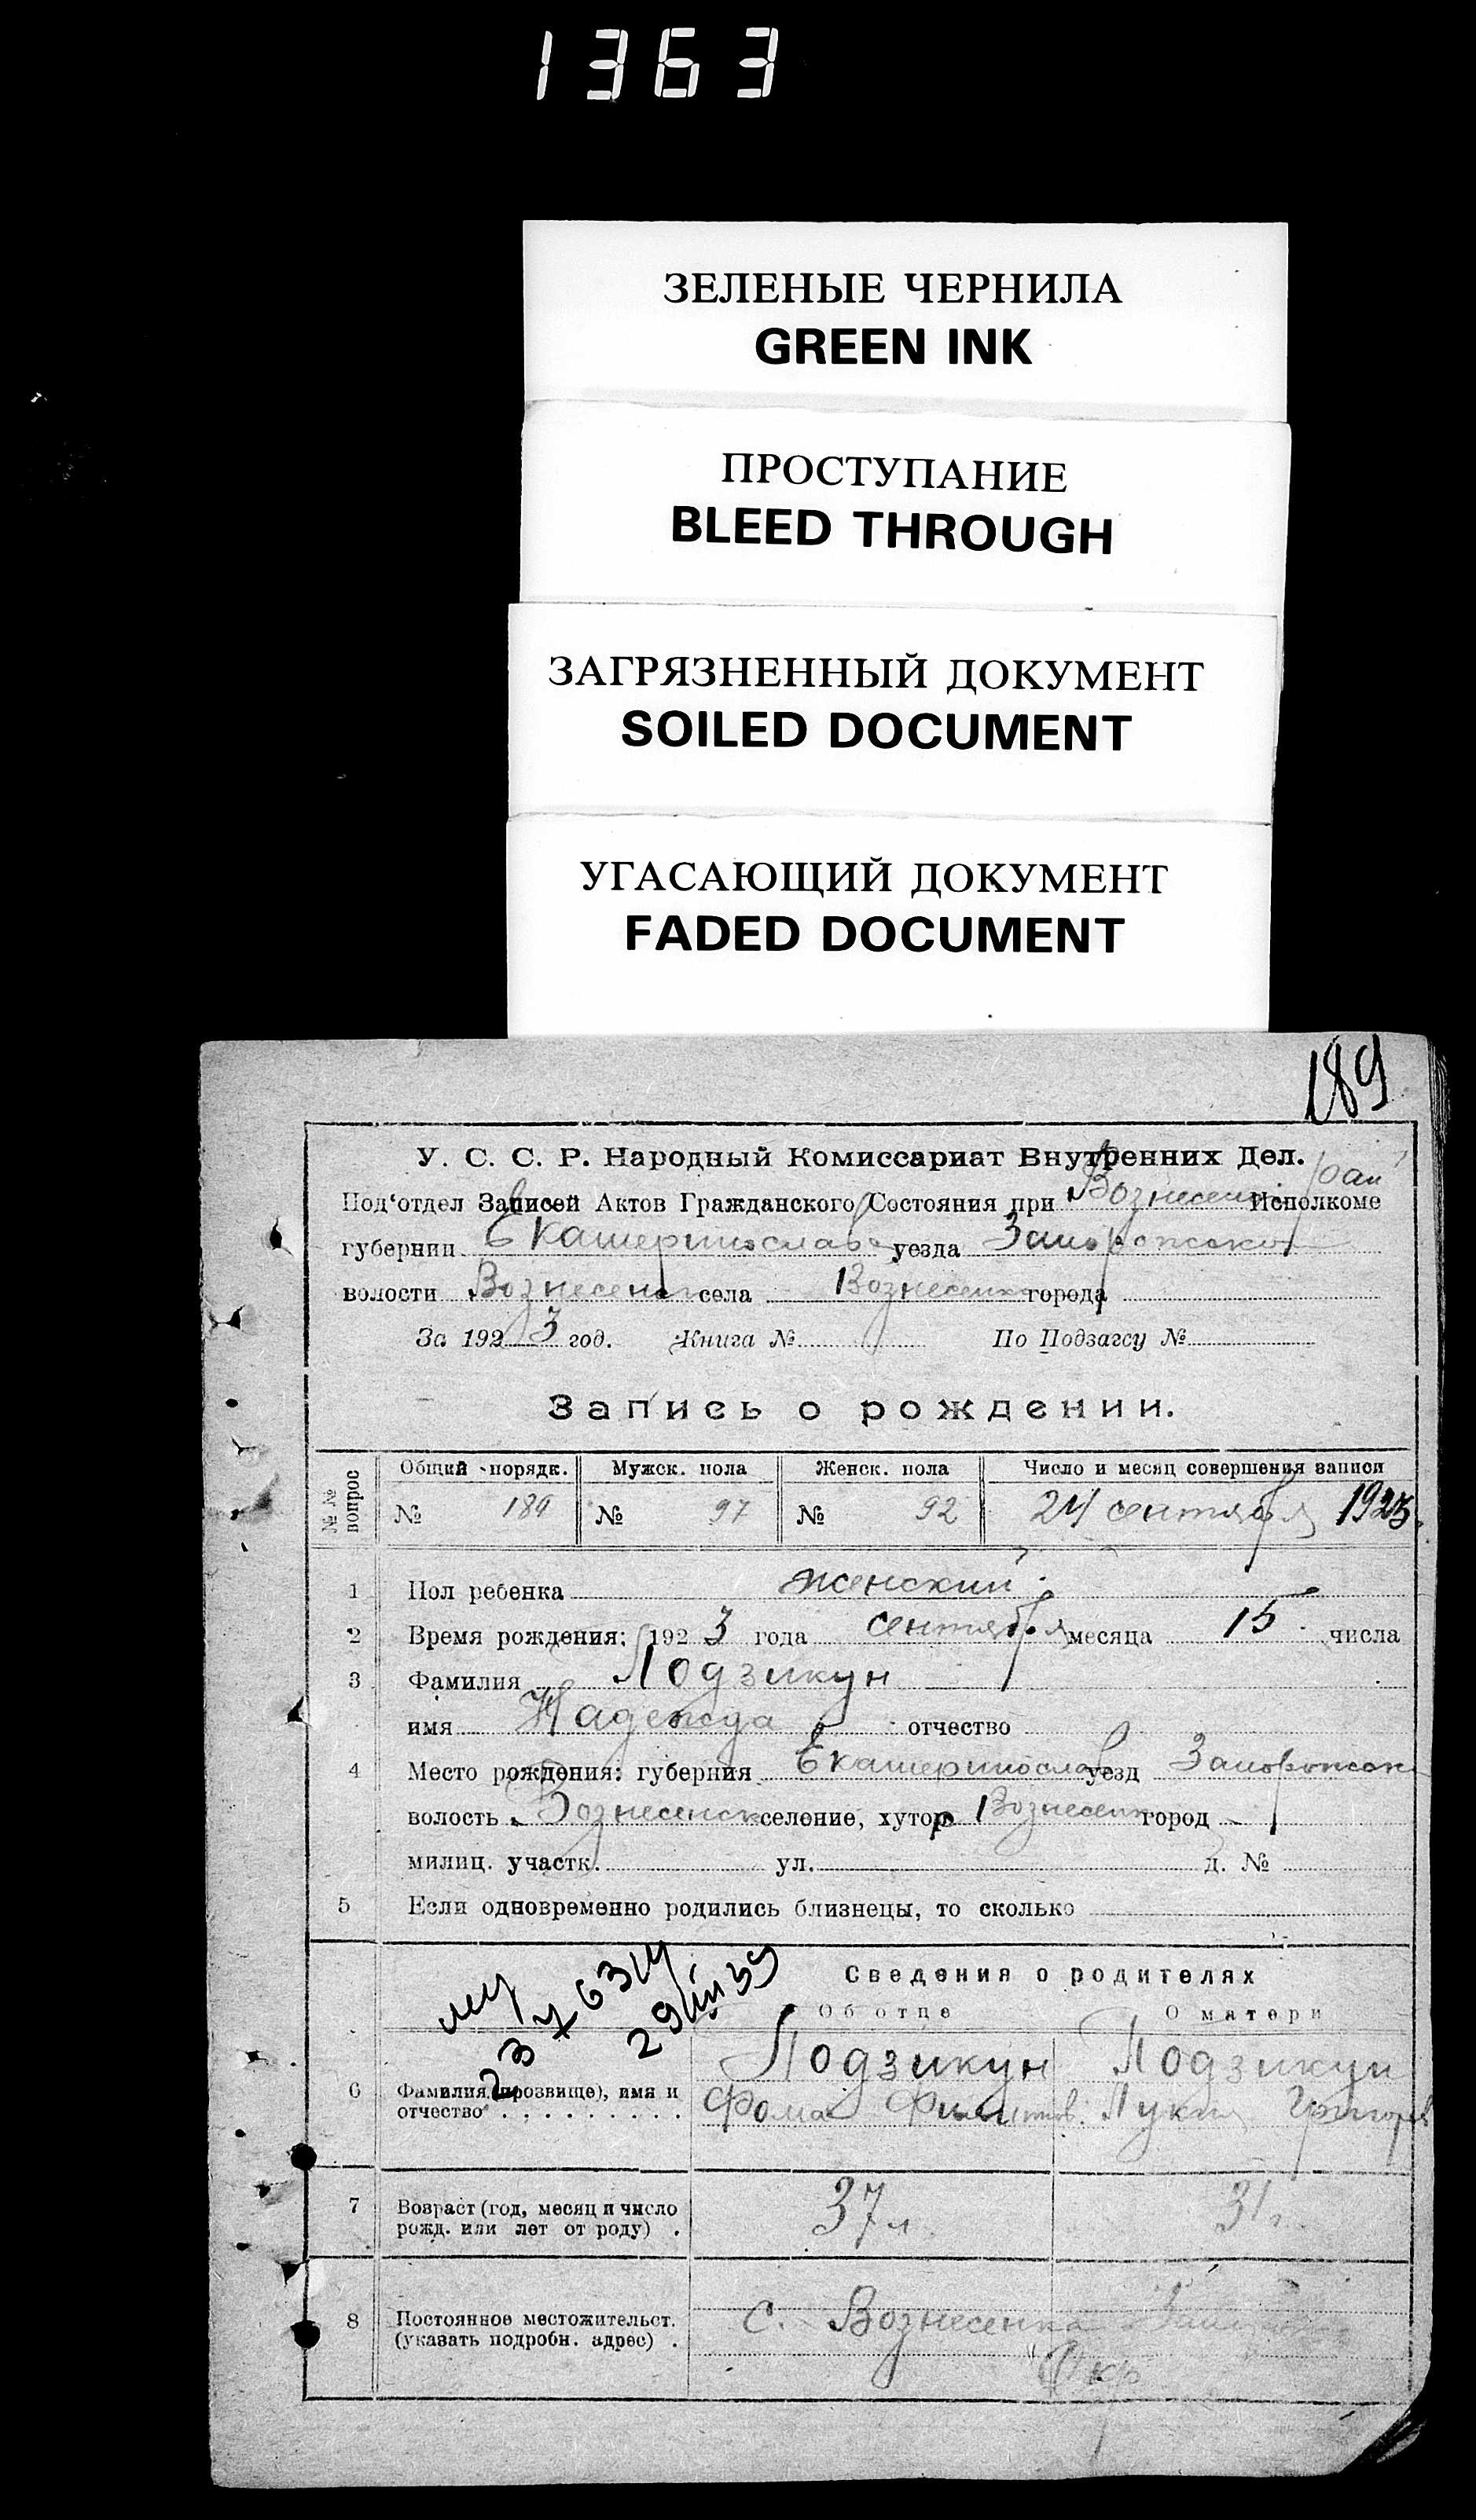 1363
ЗЕЛЕНЫЕ ЧЕРНИЛА
GREEN INK
ПРОСТУПАНИЕ
BLEED THROUGH
ЗАГРЯЗНЕННЫЙ ДОКУМЕНТ
SOILED DOCUMENT
УГАСАЮЩИЙ ДОКУМЕНТ
FADED DOCUMENT
189
У. С. С. Р. Народный Комиссариат Внутренних Дел.
Под'отдел Записей Актов Гражданского Состояния при Вознесенс. рай Исполкоме
губернии Екатеринослав уезда Запорожского
волости Вознесенск села Вознесенка города
За 1923 год. Книга № По Подзагсу №
Запись о рождении.
№№ вопрос Общий порядк. Мужск. пола Женск. пола Число и месяц совершения записи
№ 189 № 97 № 92 24 сентября 1923
1 Пол ребенка женский
2 Время рождения: 1923 года сентября месяца 15 числа
3 Фамилия Лодзикун
имя Надежда отчество
4 Место рождения: губерния Екатеринослав уезд Запорожск
волость Вознесенск селение, хутор Вознесенк город
милиц. участк. ул. д. №
5 Если одновременно родились близнецы, то сколько
Сведения о родителях
Об отце О матери
Лодзикун Лодзикун
6 Фамилия (прозвище), имя и
отчество Фома Григорьев
7 Возраст (год, месяц и число
рожд. или лет от роду) 37 л. 31 г.
8 Постоянное местожительст.
(указать подробн. адрес) с. Вознесенка
Окр